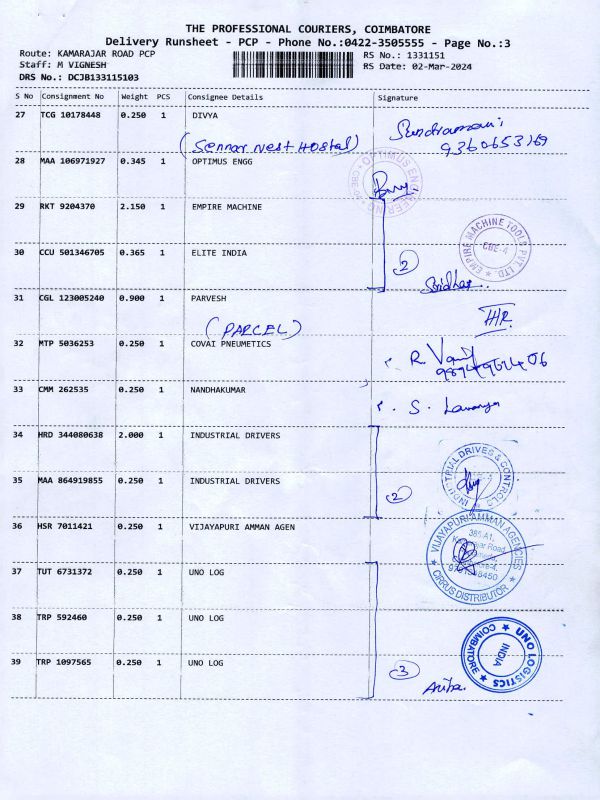 THE PROFESSIONAL COURIERS, COIMBATORE
Delivery Runsheet - PCP - Phone No.:0422-3505555 - Page No.:3
Route: KAMARAJAR ROAD PCP
Staff: M VIGNESH
DRS No.: DCJB133115103
RS No.: 1331151
RS Date: 02-Mar-2024
S No Consignment No Weight PCS Consignee Details Signature
27 TCG 10178448 0.250 1 DIVYA
(Sennar Nest Hostal)
9360653169
28 MAA 106971927 0.345 1 OPTIMUS ENGG
OPTIMUS ENGINEERING
29 RKT 9204370 2.150 1 EMPIRE MACHINE
EMPIRE MACHINE TOOLS PVT. LTD.
CBE-4
30 CCU 501346705 0.365 1 ELITE INDIA
2
Sridhar
31 CGL 123005240 0.900 1 PARVESH
(PARCEL)
32 MTP 5036253 0.250 1 COVAI PNEUMETICS
33 CMM 262535 0.250 1 NANDHAKUMAR
S. Lavanya
34 HRD 344080638 2.000 1 INDUSTRIAL DRIVERS
35 MAA 864919855 0.250 1 INDUSTRIAL DRIVERS
2
INDUSTRIAL DRIVES & CONTROLS
36 HSR 7011421 0.250 1 VIJAYAPURI AMMAN AGEN
VIJAYAPURI AMMAN AGENCIES
385 A1,
CIRRUS DISTRIBUTOR
37 TUT 6731372 0.250 1 UNO LOG
38 TRP 592460 0.250 1 UNO LOG
39 TRP 1097565 0.250 1 UNO LOG
3
UNO LOGISTICS
COIMBATORE
INDIA